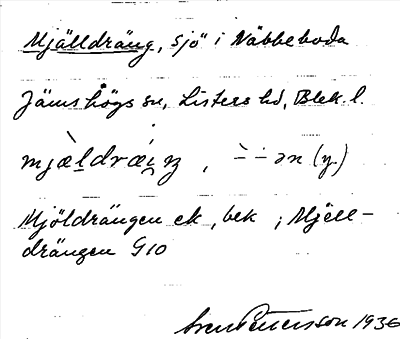 Mjälldräng, sjö i Näbbeboda
Jämshögs sn, Listers hd, Blek. l.
mjæ̀ldræŋ, -̀ - ən (y.)
Mjöldrängen ek, bek ; Mjell-
drängen G10
Sven Petersson 1936